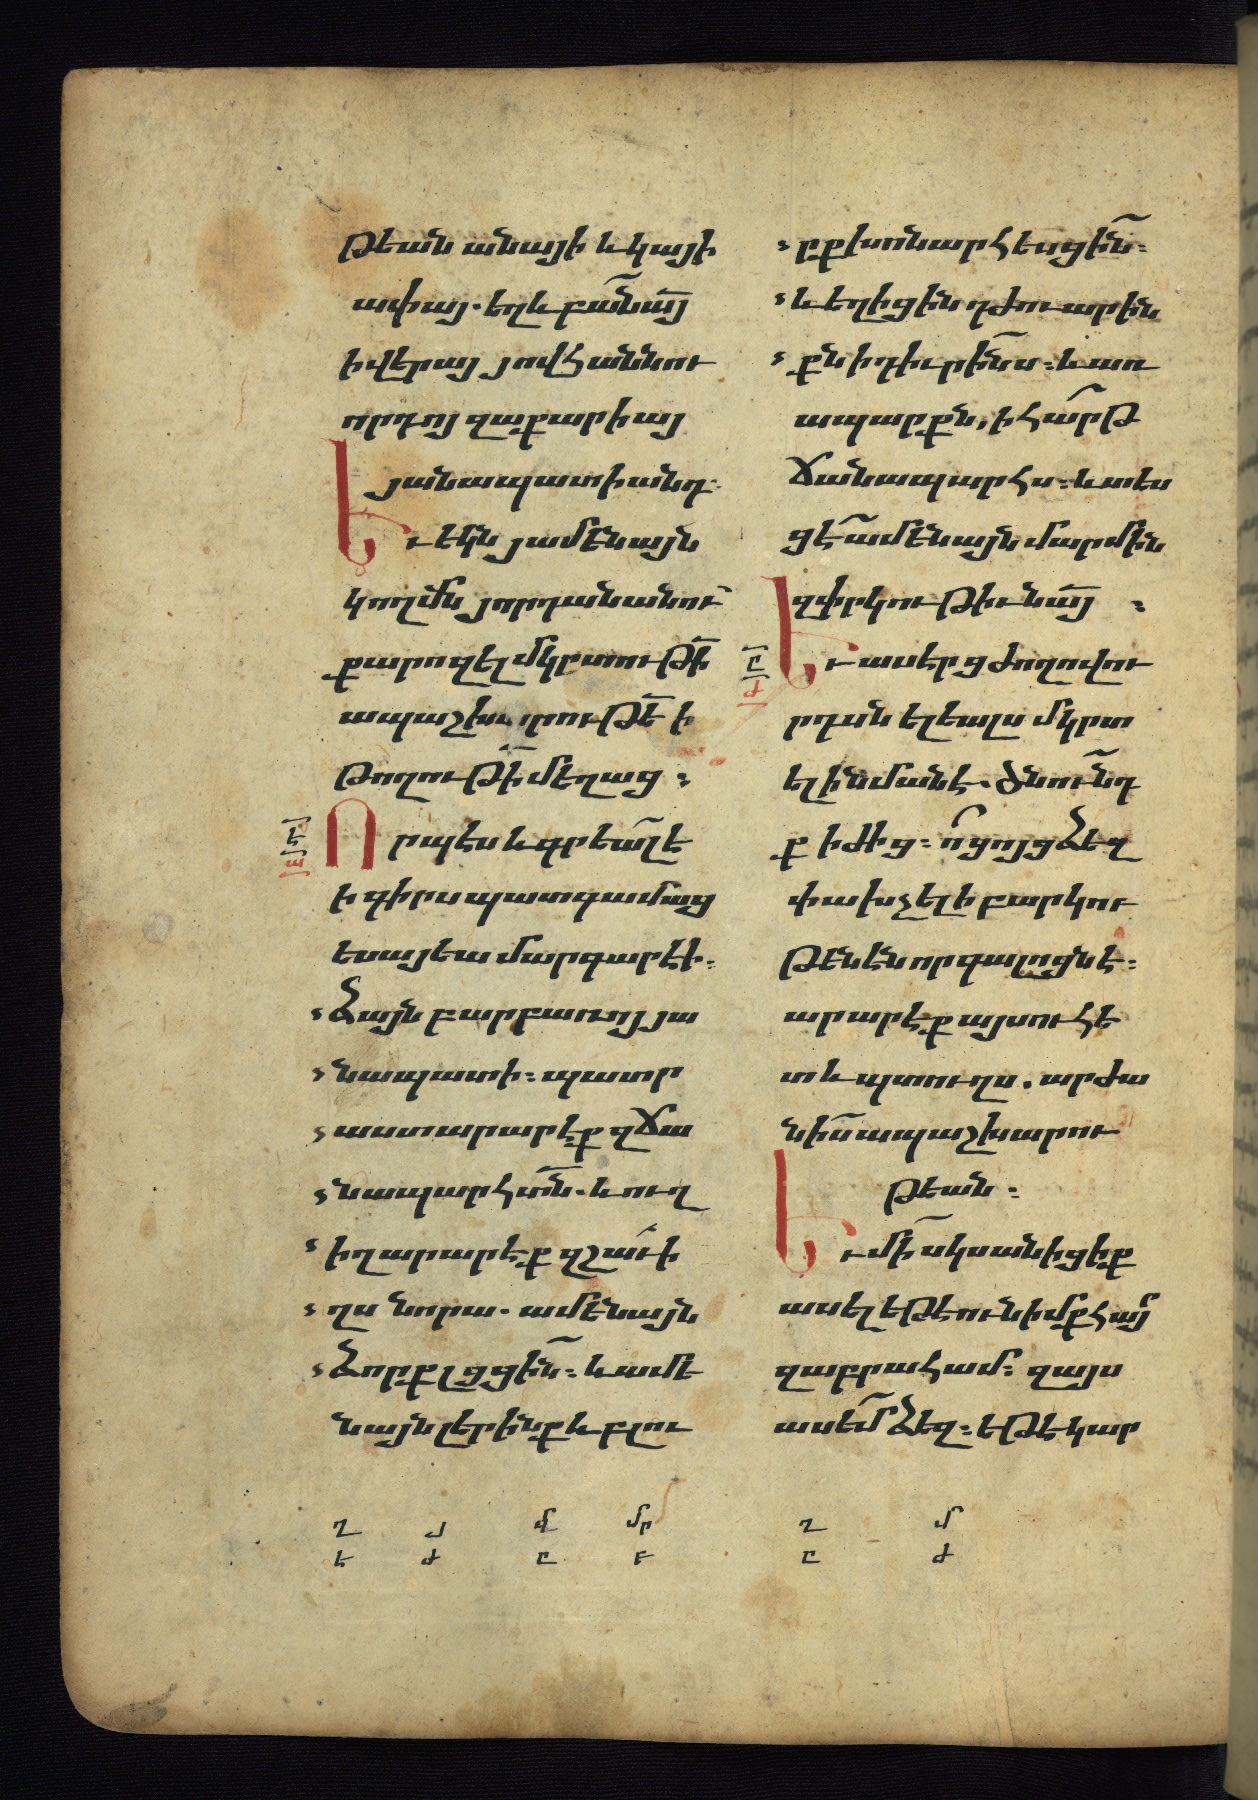 թեան անայի և կայի
ափայ. եղև բան ա՟յ
ի վերայ յովհաննու
որդոյ զաքարիայ
յանապատի անդ.
Եւ եկն յամենայն
կողմն յորդանանու
քարոզել մկրտութի՟
ապաշխարութե՟ ի
թողութի՟ մեղաց :
Որպես և գրեալ է
ի գիրս պատգամաց
եսայեա մարգարէի.
ձայն բարբառոյ յա
նապատի. պատր
աստ արարէք զճա
նապարհ տն՟. և ուղ
իղ արարէք զշաւի
ղս նորա. ամենայն
ձորք լցցին. և ամե
նայն լերինք և բլու
րք խոնարհեսցին.
և եղիցին դժուարին
քն ի դիւրինս. և առ
ապարքն, ի հարթ
ճանապարհս. և տես
ցէ ամենայն մարմին
զփրկութիւն ա՟յ :
Եւ ասէր ց ժողովու
րդան ելեալս մկրտ
ել ի նմանէ. ծնունդ
ք իժից. ո՟ ցոյց ձեզ
փախչել ի բարկու
թենէն որ գալոցն է.
արարէք այսուհե
տև պտուղս. արժա
նիս ապաշխարու
թեան.
Եւ մի՟ սկսանիցիք
ասել եթե ունիմք հայր
զաբրահամ. զայս
ասեմ ձեզ. եթե կար
է
ը
ժ
ղ յ մ մր
է ժ ը բ
ղ մ
ը ժ